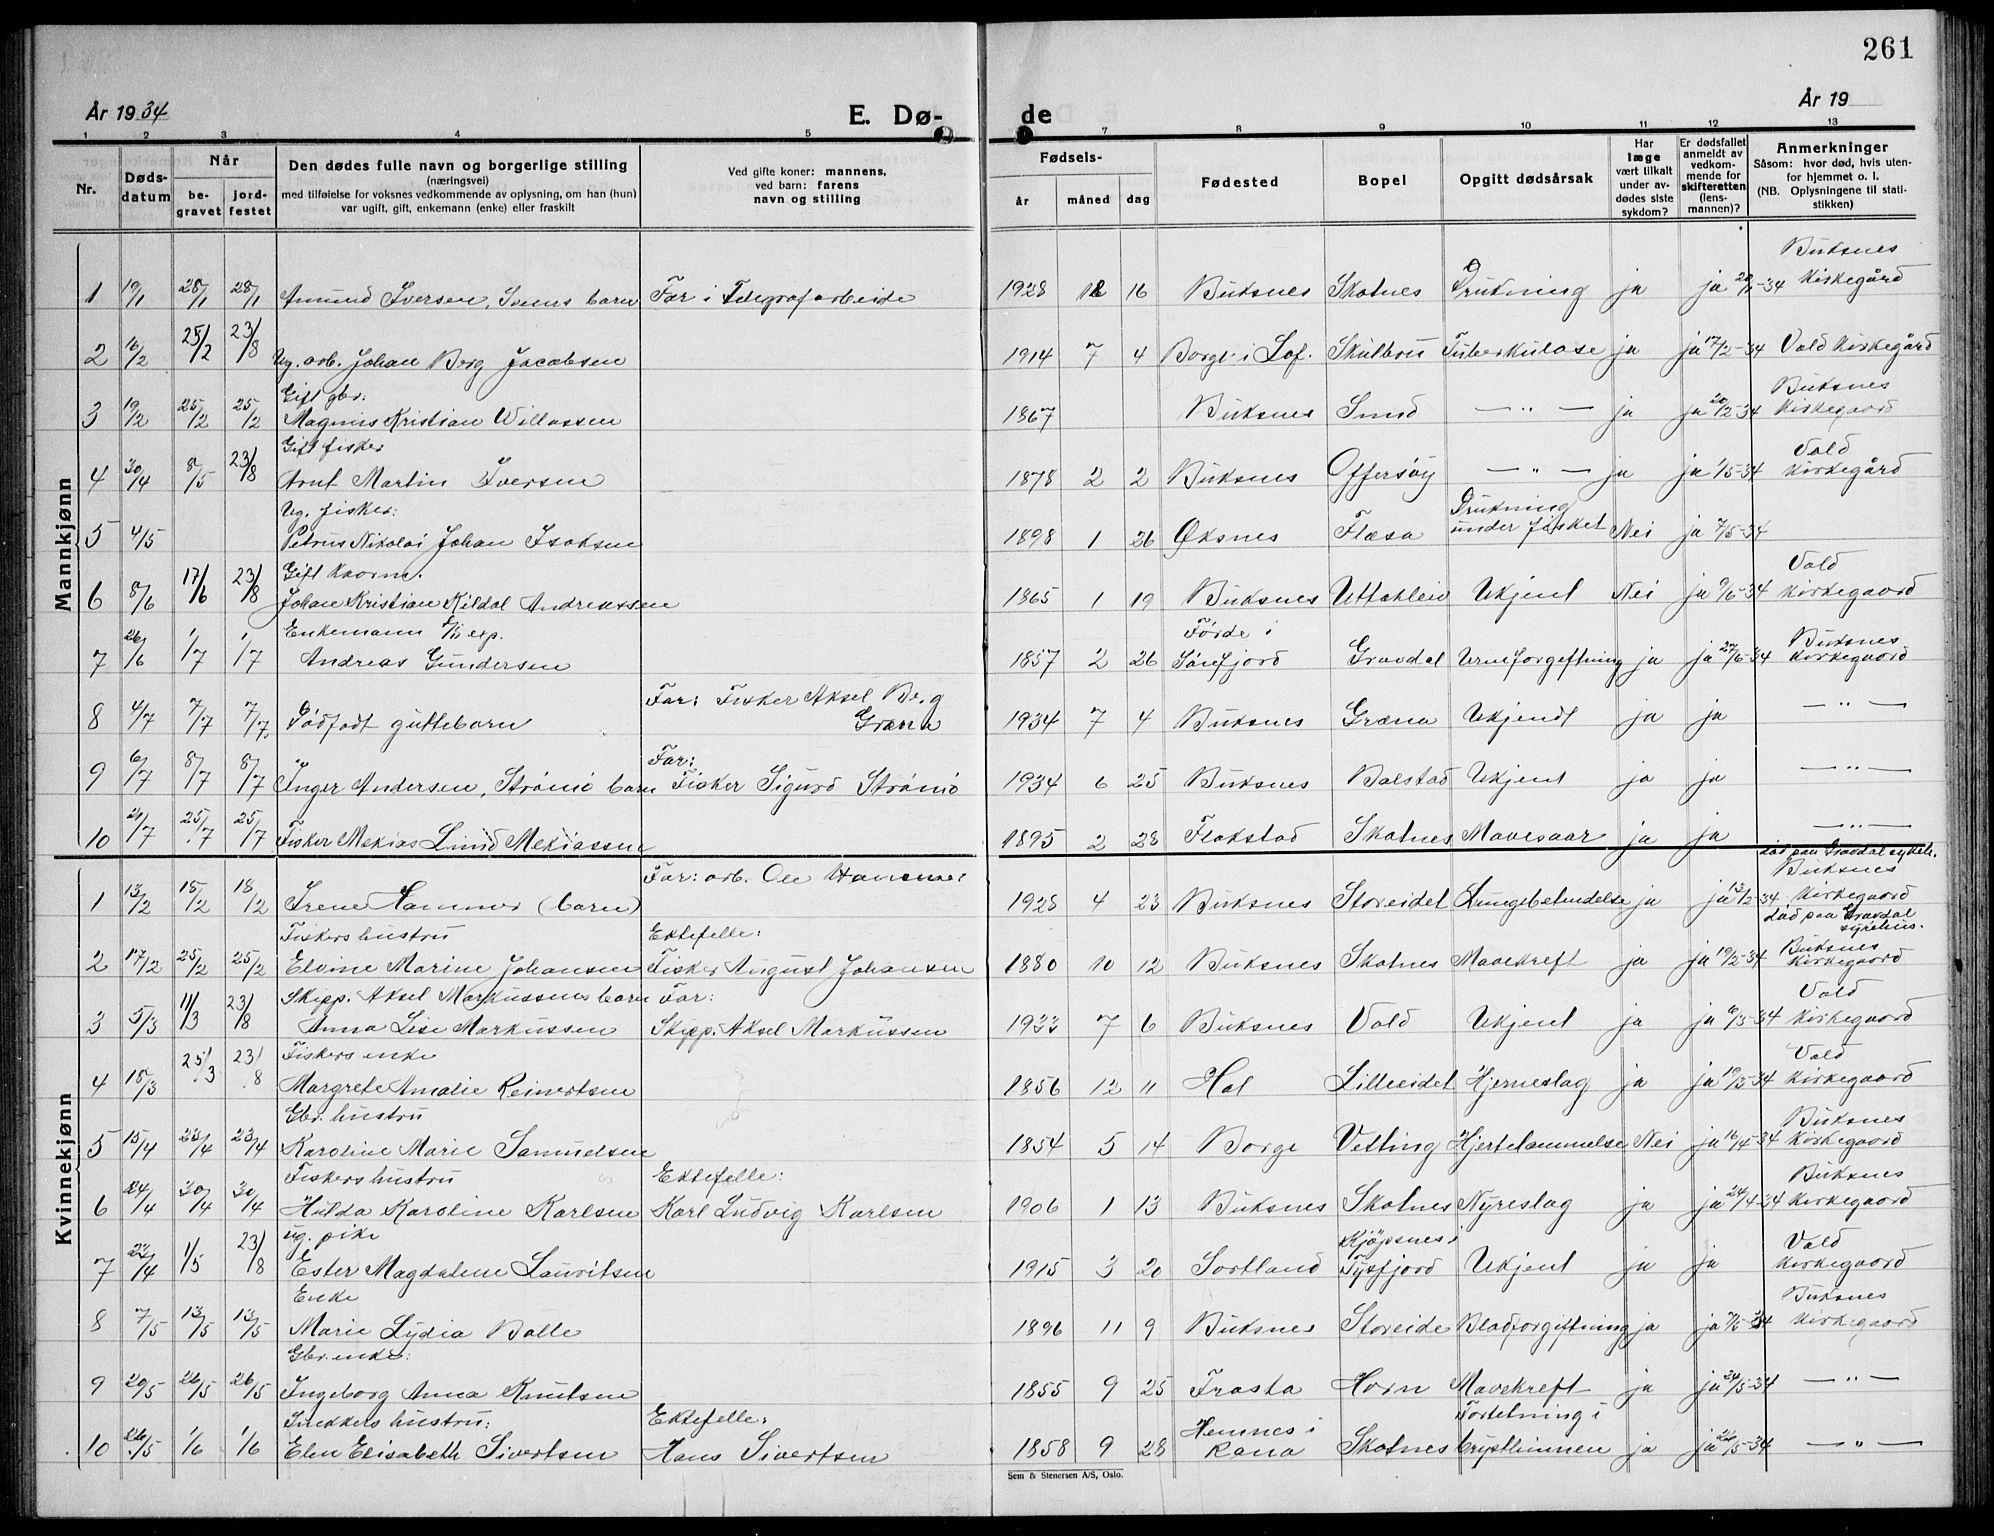 261
År 1934 E. Dø-
de År 19
1 2 3 4 5 7 8 9 10 11 12 13
Nr.
Døds-
datum
Når
be-
gravet
jord-
festet
Den dødes fulle navn og borgerlige stilling
(næringsvei)
med tilføielse for voksnes vedkommende av oplysning, om han (hun)
var ugift, gift, enkemann (enke) eller fraskilt
Ved gifte koner: mannens,
ved barn: farens
navn og stilling
Fødsels-
år måned dag
Fødested
Bopel
Opgitt dødsårsak
Har
læge
vært tilkalt
under av-
dødes siste
sykdom?
Er dødsfallet
anmeldt av
vedkom-
mende for
skifteretten
(lens-
mannen)?
Anmerkninger
Såsom: hvor død, hvis uten-
for hjemmet o. l.
(NB. Oplysningene til stati-
stikken)
Mannkjønn
Buksnes
1 19/1 28/1 28/1 Amund Iversen, barn Far i Telegrafarbeide 1928 16 Buksnes Skotnes Drukning ja ja -34 Kirkegård
2 16/2 25/2 23/8 Ug. arb. Johan Berg Jacobsen 1914 7 4 Borge i Lof. Skulbru Tuberkulose ja ja 17/2-34 Vold Kirkegård
Gift gbr: Buksnes
3 19/2 25/2 25/2 Magnus Kristian Willassen 1867 Buksnes Sund — " — ja ja 20/2-34 Kirkegaard
Gift fisker Vold
4 30/4 8/5 23/8 Arnt Martin Iversen 1878 2 2 Buksnes Offersøy — " — ja ja 1/5-34 Kirkegård
Ug. fisker: Drukning
5 4/5 Petrus Nikolai Johan Isaksen 1898 1 26 Øksnes Flæsa under fisket Nei ja 7/5-34
Gift Vold
6 8/6 17/6 23/8 Johan Kristian Kildal Andreassen 1865 1 19 Buksnes Uttakleiv Ukjent Nei ja 9/6-34 Kirkegaard
Enkemann exp. Førde i Buksnes
7 26/6 1/7 1/7 Andreas Gundersen 1857 2 26 Sønfjord Gravdal Urinforgiftning ja ja 27/6-34 Kirkegaard
Far: Fisker Aksel Berg
8 4/7 7/7 7/7 Dødfødt guttebarn Græna 1934 7 4 Buksnes Græna Ukjendt ja ja — " —
Far:
9 6/7 8/7 8/7 Inger Andersen, Strømø barn Fisker Sigurd Strømø 1934 6 25 Buksnes Balstad Ukjent ja ja — " —
10 21/7 25/7 25/7 Fisker Mekias Lund Mekiassen 1895 2 28 Flakstad Skotnes Mavesaar ja ja — " —
død paa Gravdal sykeh.
Kvinnekjønn
Far: arb. Ole Hammer Buksnes
1 13/2 18/2 18/2 Irene Hammer (barn) 1928 4 23 Buksnes Storeidet Lungebetendelse ja ja 13/2-34 Kirkegaard
død paa Gravdal
Fiskers hustru Ektefelle: Buksnes
2 17/2 25/2 25/2 Elvine Marine Johansen Fisker August Johansen 1880 10 12 Buksnes Skotnes Mavekreft ja ja 19/2-34 Kirkegaard
Skipp. Aksel Markussens barn Far: Vold
3 5/3 11/3 23/8 Anna Lise Markussen Skipp. Aksel Markussen 1933 7 6 Buksnes Vold Ukjent ja ja 6/3-34 Kirkegaard
Fiskers enke Vold
4 18/3 25/3 23/8 Margrete Amalie Reinertsen 1856 12 11 Hol Lilleeidet Hjerneslag ja ja 19/3-34 Kirkegaard
Gbr. hustru Buksnes
5 15/4 23/4 23/4 Karoline Marie Samuelsen 1854 5 14 Borge Vetting Hjertelammelse Nei ja 16/4-34 Kirkegaard
Fiskers hustru Ektefelle: Buksnes
6 24/4 30/4 30/4 Hulda Karoline Karlsen Karl Ludvig Karlsen 1906 1 13 Buksnes Skotnes Nyreslag ja ja 24/4-34 Kirkegaard
ug. pike Kjøpsnes i Vold
7 23/4 1/5 23/8 Ester Magdalene Lauritsen 1915 3 20 Sortland Tysfjord Ukjent ja ja Kirkegaard
Enke Buksnes
8 7/5 13/5 13/5 Marie Lydia Balle 1896 11 9 Buksnes Storeide Blodforgiftning ja ja -34 Kirkegaard
Gbr. enke:
9 20/5 26/5 26/5 Ingeborg Anna Knutsen 1855 9 25 Frosta Horn Mavekreft ja ja -34 — " —
Snekkers hustru: Ektefelle: Hemnes i Fortetning i
10 26/5 1/6 1/6 Elen Elisabeth Sivertsen Hans Sivertsen 1858 9 28 Rana Skotnes brysthinnen ja ja -34 — " —
Sem & Stenersen A/S, Oslo.